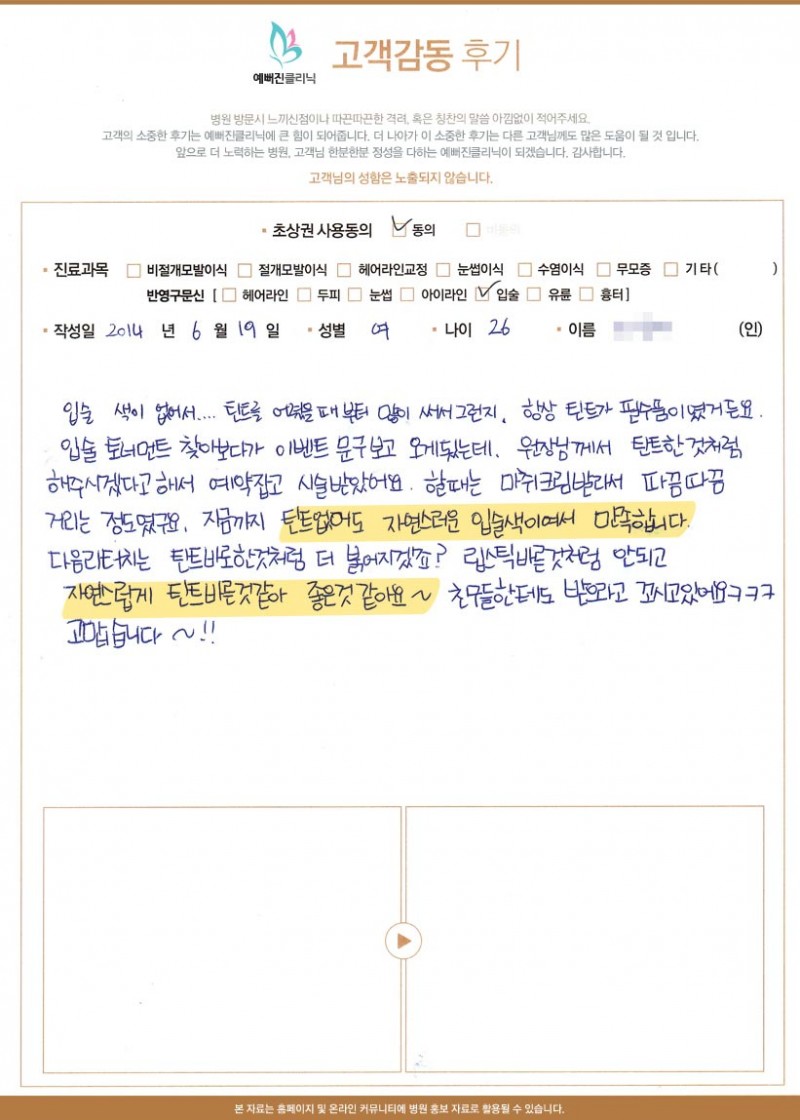 예뻐진클리닉
고객감동 후기
병원 방문시 느끼신점이나 따끈따끈한 격려, 혹은 칭찬의 말씀 아낌없이 적어주세요.
고객의 소중한 후기는 예뻐진클리닉에 큰 힘이 되어줍니다. 더 나아가 이 소중한 후기는 다른 고객님께도 많은 도움이 될 것 입니다.
앞으로 더 노력하는 병원, 고객님 한분한분 정성을 다하는 예뻐진클리닉이 되겠습니다. 감사합니다.
고객님의 성함은 노출되지 않습니다.
• 초상권 사용동의 ☑ 동의 ☐
• 진료과목 ☐ 비절개모발이식 ☐ 절개모발이식 ☐ 헤어라인교정 ☐ 눈썹이식 ☐ 수염이식 ☐ 무모증 ☐ 기타( )
반영구문신 [ ☐ 헤어라인 ☐ 두피 ☐ 눈썹 ☐ 아이라인 ☑ 입술 ☐ 유륜 ☐ 흉터 ]
• 작성일 2014 년 6 월 19 일 • 성별 여 • 나이 26 • 이름 (인)
입술 색이 없어서.... 틴트를 어렸을때부터 많이 써서그런지, 항상 틴트가 필수품이였거든요.
입술 토너먼트 찾아보다가 이벤트 문구보고 오게됬는데, 원장님께서 틴트한것처럼
해주시겠다고해서 예약잡고 시술받았어요. 할때는 마취크림발라서 따끔따끔
거리는 정도였구요, 지금까지 틴트없어도 자연스러운 입술색이여서 만족합니다.
다음리터치는 틴트바로한것처럼 더 붉어지겠죠? 립스틱바른것처럼 안되고
자연스럽게 틴트바른것같아 좋은것 같아요~ 친구들한테도 받으라고 꼬시고있어요ㅋㅋㅋ
고맙습니다 ~!!
본 자료는 홈페이지 및 온라인 커뮤니티에 병원 홍보 자료로 활용될 수 있습니다.